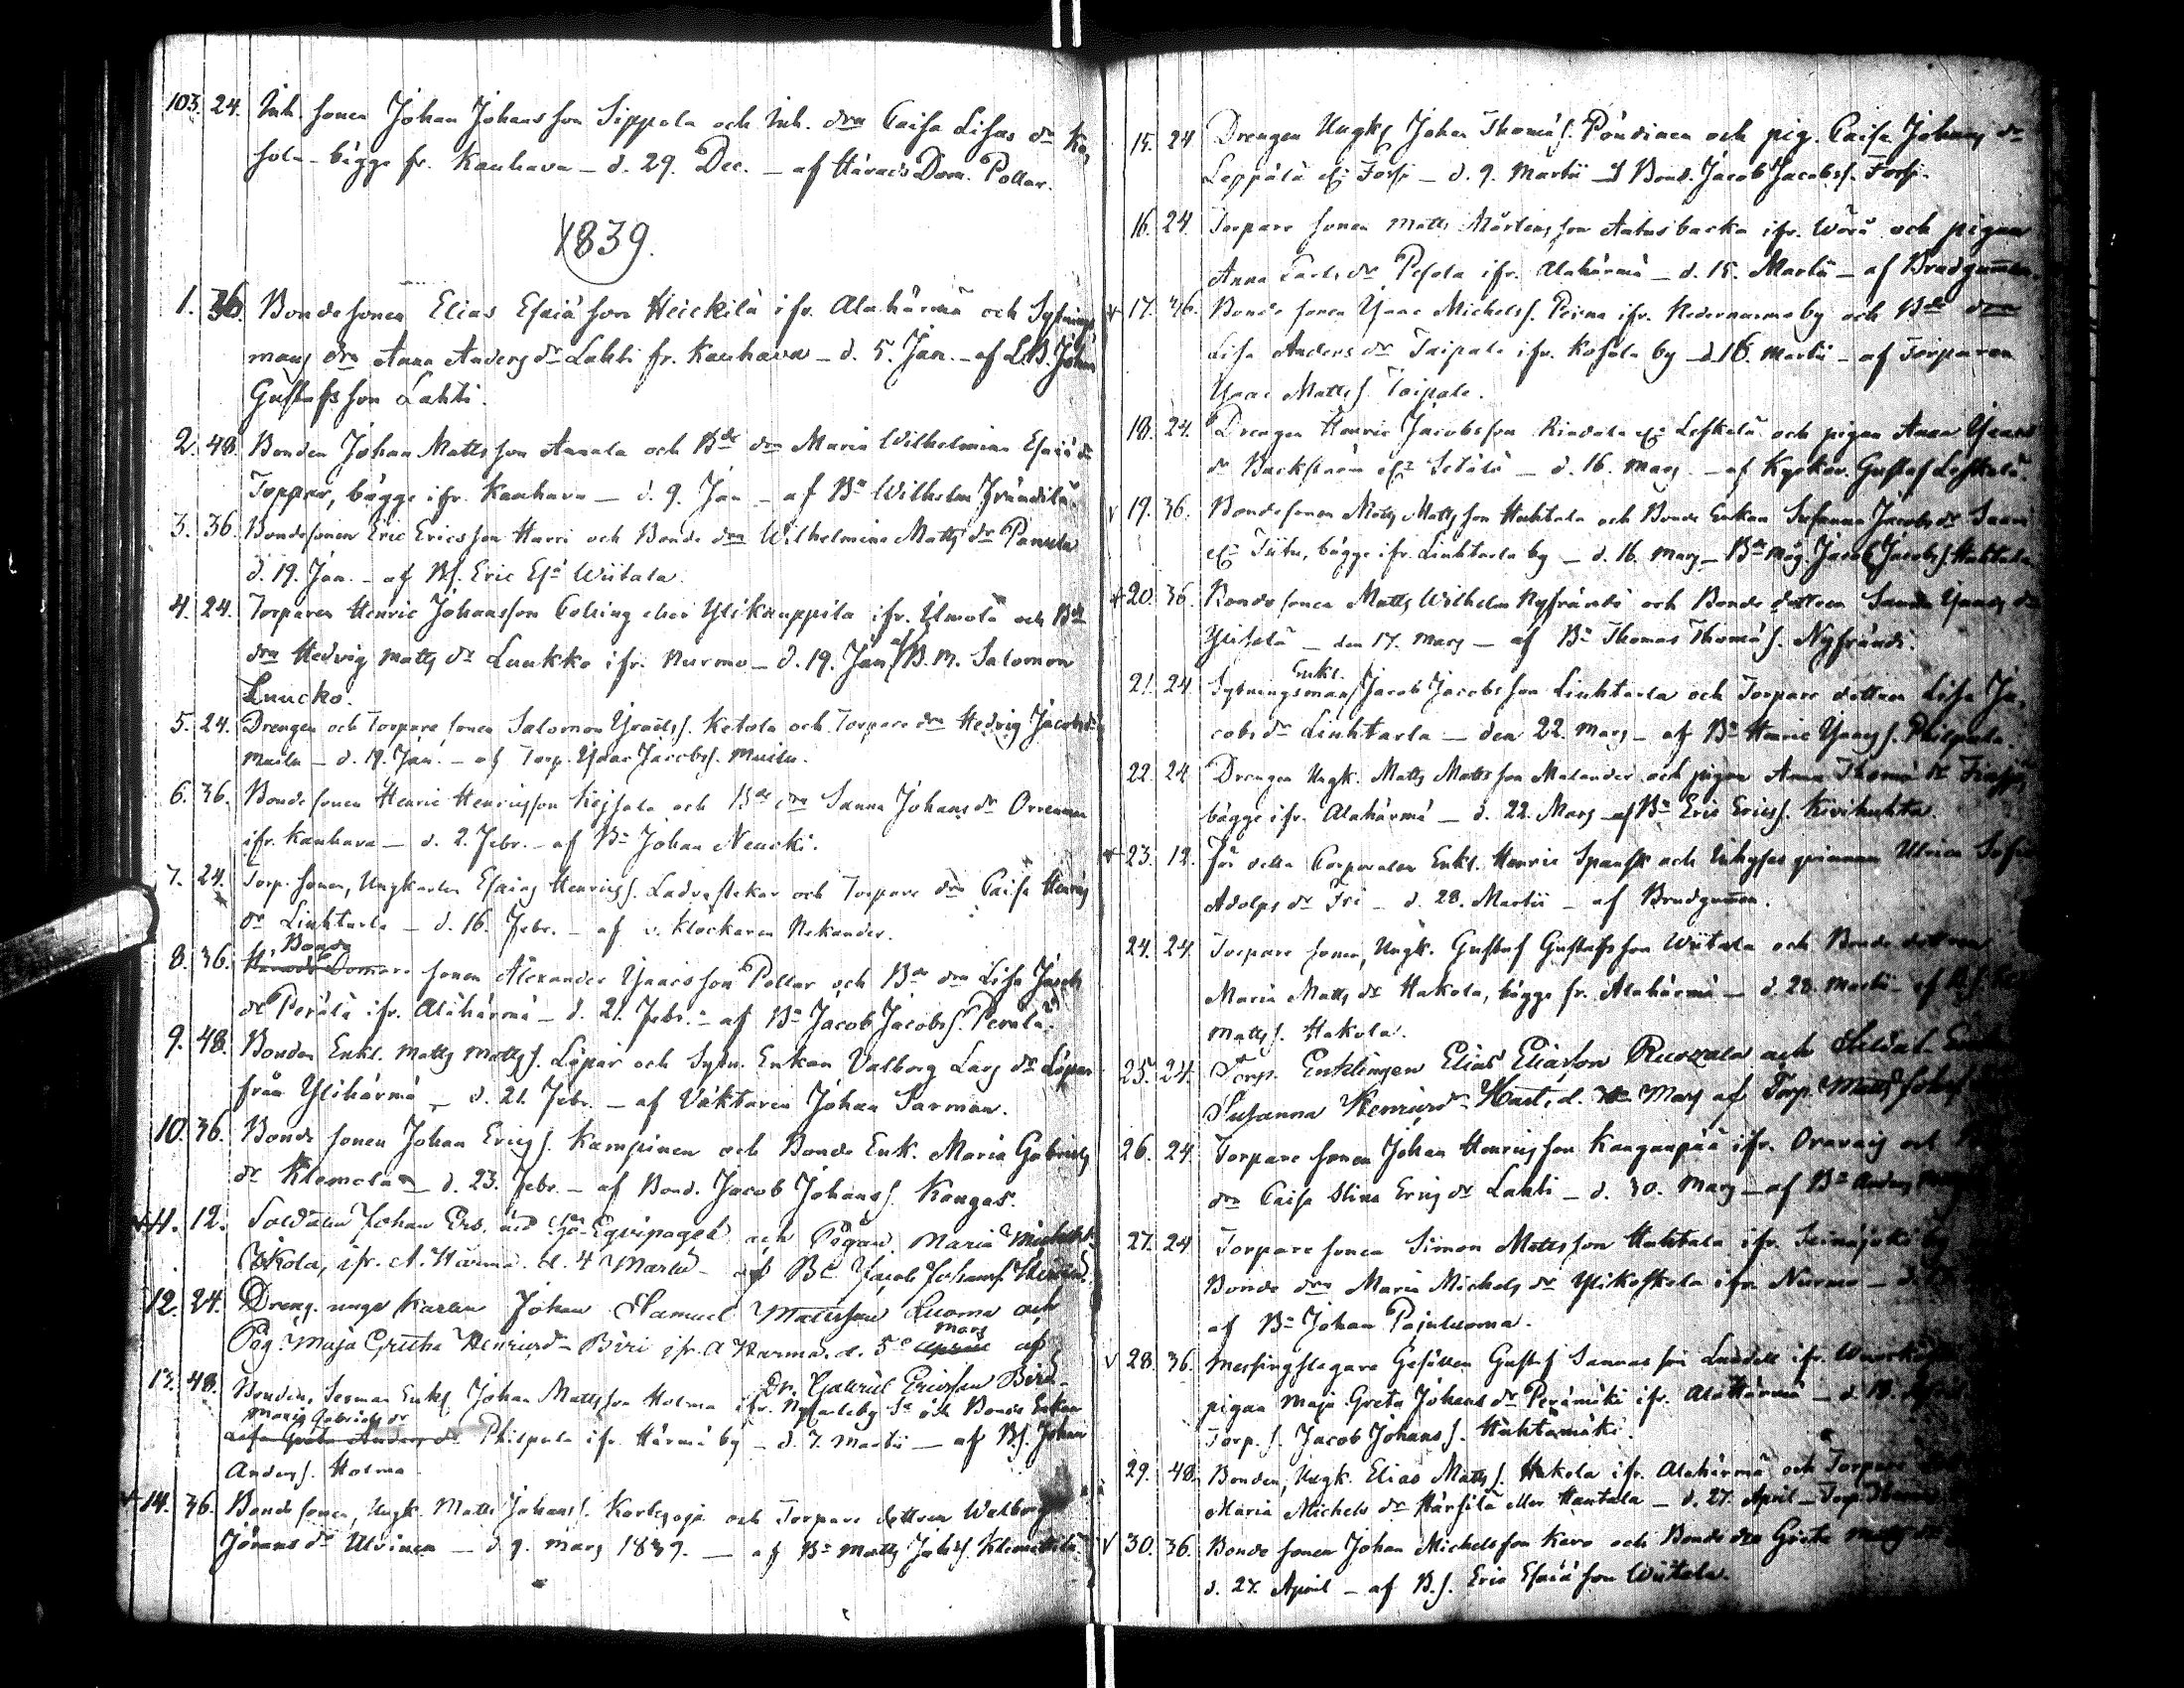 103. 24. Inh. sonen Johan Johansson Sippola och Inh. drn Caisa Lisas dr Ko,
sola - bägge fr. Kauhava - d. 29. Dec. - af Härads Dom. Pollar.
1839.
1. 36. Bondesonen Elias Esaiäson Heickilä ifr. Alahärmä och Sytnings
mans drn Anna Anders dr Lahti fr. Kauhava - d. 5. Jan. - af L.B. Johan
Gustafsson Lahti.
2. 48. Bonden Johan Mattsson Annala och Bde drn Maria Wilhelmina Esaiä dr
Toppar, bägge ifr. Kauhava - d. 9. Jan - af Bn Wilhelm Frändilä.
3. 36. Bondesonen Eric Ericsson Harri och Bonde drn Wilhelmina Matts dr Panula
d. 19. Jan. - af Bs. Eric Esä Wiitala.
4. 24. Torparen Henric Johansson Colling eller Ylikauppila ifr. Ilmola och Bde
drn Hedvig Matts dr Luukko ifr. Nurmo - d. 19. Jan. af B.M. Salomon
Luucko.
5. 24. Drengen och Torpare sonen Salomon Israels s. Ketola och Torpare drn Hedvig Jacobs dr
Muilu - d. 19. Jan. - af Torp. Isaac Jacobs s. Muilu.
6. 36. Bonde sonen Henric Henricsson Keisala och Bde drn Sanna Johans dr Orrenmaa
ifr. Kauhava - d. 2. Febr. - af Bn Johan Neucki.
7. 24. Torp. sonen, Ungkarlen Esaias Henrics s. Ladvastekar och Torpare drn Caisa Henrics
dr Liuhtarla - d. 16. Febr. - af v. Klockaren Nekander.
Bonde
8. 36. Härads Domare sonen Alexander Isaacsson Pollar och Bde drn Lisa Jacobs
dr Perälä ifr. Alahärmä - d. 21. Febr. - af Bn Jacob Jacobs s. Perälä.
9. 48. Bonden Enkl. Matts Matts s. Löpar och Sytn. Enkan Valborg Lars dr Löpar
från Ylihärmä - d. 21. Febr. - af Väktaren Johan Sarman.
10. 36. Bonde sonen Johan Erics s. Kampinen och Bonde Enk. Maria Gabriels
dr Klemola - d. 23. Febr. - af Bond. Jacob Johans s. Kangas.
11. 12. Soldaten Johan Ers. wid Sjö-Eqvipaget och Pigan Maria Michels dr
Ekola, ifr. A. Härmä. d. 4 Martii - af Bd. Jacob Johans s.
12. 24. Dreng. unge karlen Johan Samuel Mattsson Luoma och
Mars
Pig. Maja Gretha Henricsdr Biri ifr. A Harmä. d. 5e april af
Dr. Gabriel Ericsson Biri.
13. 48. Bonden, Sexman Enkl Johan Mattsson Holma ifr. Nykarleby Sn och Bonde Enkan
Maria Gabriels dr
Lisa Greta Anders dr Philpula ifr. Härmä by - d. 7. Martii - af Bs. Johan
Anders s. Holma
14. 36. Bonde sonen, Ungk. Matts Johans s. Karlsoja och Torpare dottren Walborg
Jörans dr Ulvinen - d. 9. Mars 1839. - af Bn Matts Johs s. Klemettilä
15. 24 Drengen Ungk Johan Thomä s. Pöndinen och pig. Caisa Johans dr
Leppälä el. Forsi - d. 9. Martii - af Bond. Jacob Jacobs s. Forsi.
16. 24. Torpare sonen Matts Mårtensson Antusbacka ifr. Wörå och pigan
Anna Carls dr Pesola ifr. Alahärmä - d. 15. Martii - af Brudgummen.
17. 36. Bonde sonen Isaac Michels s. Perna ifr. Nedernurmo by och Bde drn
Lisa Anders dr Taipale ifr. Kosola by - d. 16. Martii - af Torparen
Isaac Matts s. Taipale.
18. 24. Drengen Henric Jacobsson Rindala el. Leskelä och pigan Anna Isaacs
dr Backström el. Setälä - d. 16. Mars - af Kyrkov. Gustaf Leskelä.
19. 36. Bondesonen Matts Mattsson Huhtala och Bonde Enkan Susanna Jacobs dr Saari
el. Tiitu, bägge ifr. Liuhtarla by - d. 16. Mars - Bde Måg. Jacob Jacobs s. Huhtala
20. 36. Bonde sonen Matts Wilhelm Nyfrändi och Bonde dottren Sanna Isaacs dr
Yliselä - den 17. Mars - af Bn Thomas Thomä s. Nyfrändi.
Enkl.
21. 24. Sytningsman Jacob Jacobsson Liuhtarla och Torpare dottren Lisa Ja,
cobs dr Liuhtarla - den 22. Mars - af Bn Henric Isaacs s. Philpula.
22. 24 Drengen Ungk. Matts Mattsson Malander och pigan Anna Thomä dr
bägge ifr. Alahärmä - d. 22. Mars - af Bn Eric Erics s. Kivihuhta.
23. 12. För detta Corporalen Enkl. Henric Spansk och Inhyses qvinnan Ulrica Sofia
Adolfs dr Fri - d. 28. Martii - af Brudgummen.
24. 24. Torpare sonen, Ungk. Gustaf Gustafsson Wiitala och Bonde dottren
Maria Matts dr Hakola, bägge fr. Alahärmä - d. 28. Martii - af B.s.
Matts s. Hakola.
25. 24. Torp. Enklingen Elias Eliasson Ruorala och Soldat
Susanna Henricsdr Hast, d. Mars af Torp. Matts
26. 24 Torpare sonen Johan Henricsson Kanganpää ifr. Oravais och
drn Caisa Stina Erics dr Lahti - d. 30. Mars - af Bn Anders
27. 24 Torpare sonen Simon Mattsson Huhtala ifr. Seinäjoki by
Bonde drn Maria Michels dr Ylikoskela ifr. Nurmo - d.
af Bn Johan Pajuluoma.
28. 36. Messingslagare Gesällen Gustaf Sannas son Lundell ifr.
pigan Maja Greta Johans dr Perämäki ifr. Alahärmä - d. 18.
Torp. s. Jacob Johans s. Huhtamäki.
29. 48. Bonden, Ungk. Elias Matts s. Hakola ifr. Alahärmä och Torpare
Maria Michels dr Härsilä eller Hautala - d. 27. April - Torp.
30. 36. Bonde sonen Johan Michelsson Karo och Bonde drn Greta Matts
d. 27. April - af B.s. Eric Esaiäson Wiitala.